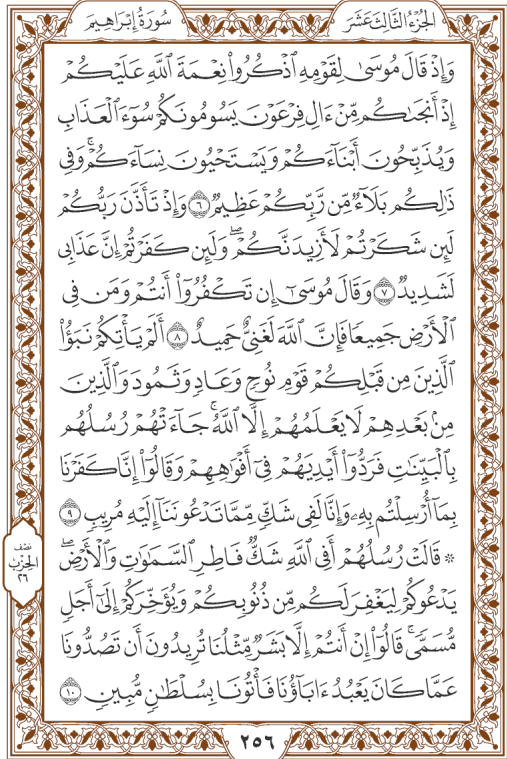 الجُزْءُ الثَّالِثَ عَشَرَ
سُورَةُ إِبْرَاهِيم
وَإِذۡ قَالَ مُوسَىٰ لِقَوۡمِهِ ٱذۡكُرُواْ نِعۡمَةَ ٱللَّهِ عَلَيۡكُمۡ
إِذۡ أَنجَىٰكُم مِّنۡ ءَالِ فِرۡعَوۡنَ يَسُومُونَكُمۡ سُوٓءَ ٱلۡعَذَابِ
وَيُذَبِّحُونَ أَبۡنَآءَكُمۡ وَيَسۡتَحۡيُونَ نِسَآءَكُمۡۚ وَفِي
ذَٰلِكُم بَلَآءٞ مِّن رَّبِّكُمۡ عَظِيمٞ ٦ وَإِذۡ تَأَذَّنَ رَبُّكُمۡ
لَئِن شَكَرۡتُمۡ لَأَزِيدَنَّكُمۡۖ وَلَئِن كَفَرۡتُمۡ إِنَّ عَذَابِي
لَشَدِيدٞ ٧ وَقَالَ مُوسَىٰٓ إِن تَكۡفُرُوٓاْ أَنتُمۡ وَمَن فِي
ٱلۡأَرۡضِ جَمِيعٗا فَإِنَّ ٱللَّهَ لَغَنِيٌّ حَمِيدٌ ٨ أَلَمۡ يَأۡتِكُمۡ نَبَؤُاْ
ٱلَّذِينَ مِن قَبۡلِكُمۡ قَوۡمِ نُوحٖ وَعَادٖ وَثَمُودَ وَٱلَّذِينَ
مِنۢ بَعۡدِهِمۡ لَا يَعۡلَمُهُمۡ إِلَّا ٱللَّهُۚ جَآءَتۡهُمۡ رُسُلُهُم
بِٱلۡبَيِّنَٰتِ فَرَدُّوٓاْ أَيۡدِيَهُمۡ فِيٓ أَفۡوَٰهِهِمۡ وَقَالُوٓاْ إِنَّا كَفَرۡنَا
بِمَآ أُرۡسِلۡتُم بِهِۦ وَإِنَّا لَفِي شَكّٖ مِّمَّا تَدۡعُونَنَآ إِلَيۡهِ مُرِيبٖ ٩
۞ قَالَتۡ رُسُلُهُمۡ أَفِي ٱللَّهِ شَكّٞ فَاطِرِ ٱلسَّمَٰوَٰتِ وَٱلۡأَرۡضِۖ
يَدۡعُوكُمۡ لِيَغۡفِرَ لَكُم مِّن ذُنُوبِكُمۡ وَيُؤَخِّرَكُمۡ إِلَىٰٓ أَجَلٖ
مُّسَمّٗىۚ قَالُوٓاْ إِنۡ أَنتُمۡ إِلَّا بَشَرٞ مِّثۡلُنَا تُرِيدُونَ أَن تَصُدُّونَا
عَمَّا كَانَ يَعۡبُدُ ءَابَآؤُنَا فَأۡتُونَا بِسُلۡطَٰنٖ مُّبِينٖ ١٠
نصف
الحزب
٢٦
٢٥٦